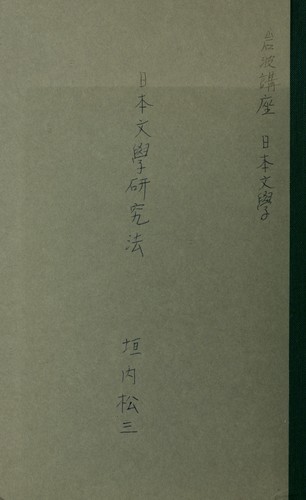 岩波講座 日本文學
日本文學研究法
垣内松三